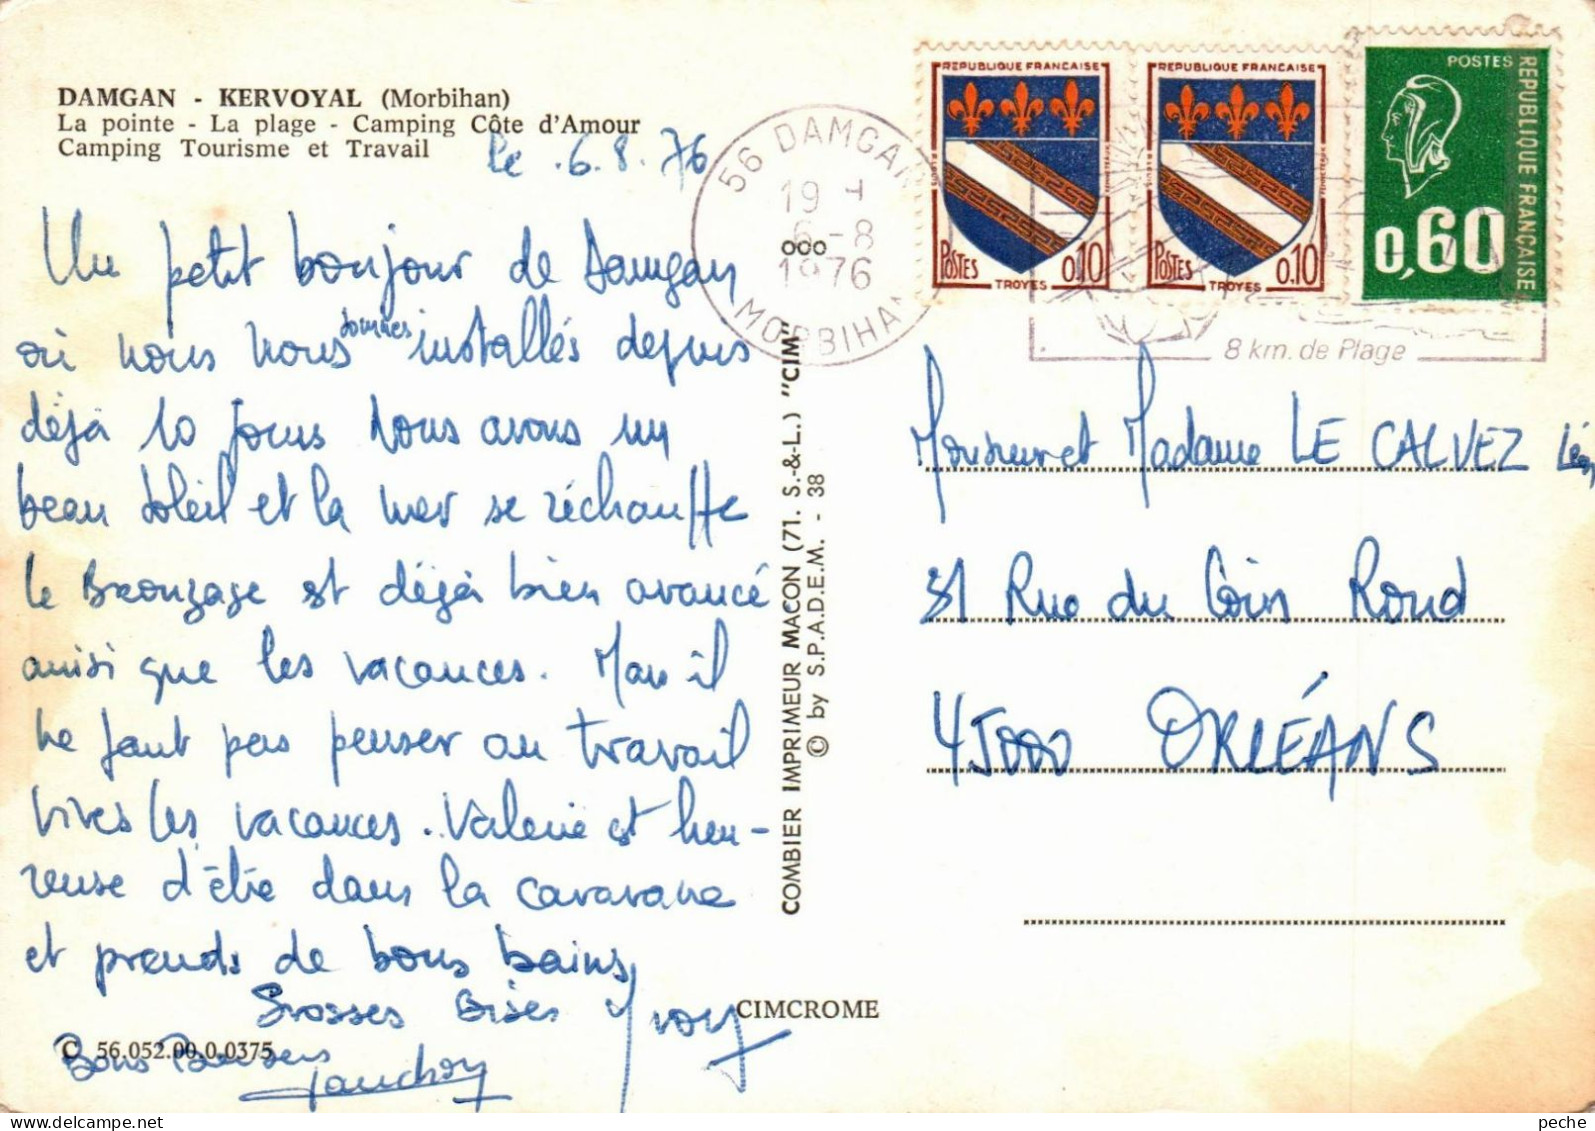 DAMGAN - KERVOYAL (Morbihan)
La pointe - La plage - Camping Côte d'Amour
Camping Tourisme et Travail
le 6.8.76
Un petit bonjour de Damgan
où nous nous sommes installés depuis
déjà 10 jours nous avons un
beau soleil et la mer se réchauffe
le Bronzage est déjà bien avancé
ainsi que les vacances. Mais il
ne faut pas penser au travail
vives les vacances. Valerie est heu-
reuse d'être dans la caravane
et prends de bons bains
Grosses Bises Yvon
Bons Baisers
C 56.052.00.0.0375
CIMCROME
COMBIER IMPRIMEUR MACON (71. S.-&-L.) "CIM"
© by S.P.A.D.E.M. - 38
56 DAMGAN
19 H
6-8
1976
MORBIHAN
8 km. de Plage
REPUBLIQUE FRANCAISE
POSTES
0,10
TROYES
REPUBLIQUE FRANCAISE
POSTES
0,10
TROYES
POSTES
REPUBLIQUE FRANÇAISE
0,60
Monsieur et Madame LE CALVEZ Léon
31 Rue du Coin Rond
45000 ORLÉANS
peche